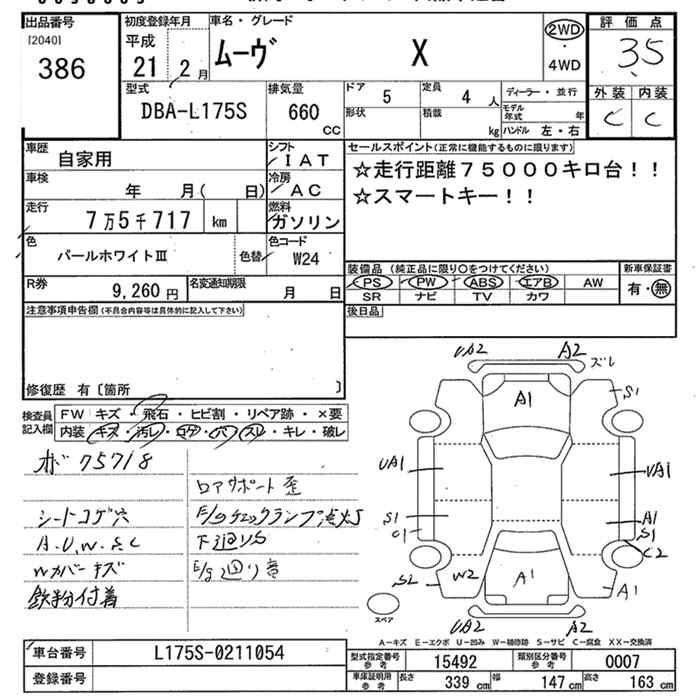 出品番号
[2040]
386
初度登録年月
平成
21 2月
車名・グレード
ムーヴ X
2WD
・
4WD
評価点
3.5
外装 内装
C C
型式
DBA-L175S
排気量
660
CC
ドア 5
定員 4 人
形状
積載 kg
ディーラー・並行
モデル年式 年
ハンドル 左・右
車歴
自家用
シフト
IAT
セールスポイント(正常に機能するものに限ります)
☆走行距離75000キロ台!!
☆スマートキー!!
車検
年 月( 日)
冷房
AC
走行
7万5千717 km
燃料
ガソリン
色
パールホワイトⅢ
色替
色コード
W24
R券
9,260 円
名変通知期限
月 日
装備品 (純正品に限り○をつけてください)
PS PW ABS エアB AW
SR ナビ TV カワ
新車保証書
有・無
後日品
注意事項申告欄(不具合内容等は具体的に記入して下さい)
修復歴 有〔箇所 〕
検査員記入欄
FW キズ・飛石・ヒビ割・リペア跡・×要
内装 キズ・汚レ・コゲ・穴・スレ・キレ・破レ
オド 75718
ロアサポート歪
シートコゲ穴
E/gチェックランプ点灯
A.U.W.S.C
下廻りS
Wカバーキズ
E/g廻り音
鉄粉付着
UA2 A2
ズレ
A1
S1
UA1
UA1
S1
C1
A1
S1
C2
S2
W2
A1
A1
スペア
UA2 A2
A-キズ E-エクボ U-凹み W-補修跡 S-サビ C-腐食 XX-交換済
車台番号
L175S-0211054
登録番号
型式指定番号
参考
15492
類別区分番号
参考
0007
車庫証明用
参考
長さ 339 cm
幅 147 cm
高さ 163 cm